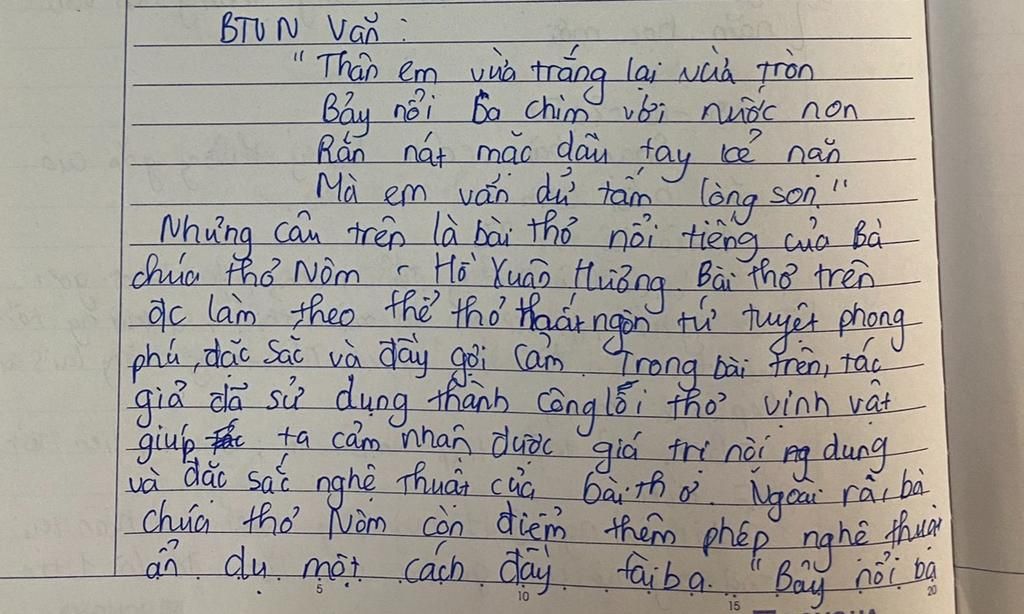 BTVN Văn:
"Thân em vừa trắng lại vừa tròn
Bảy nổi ba chìm với nước non
Rắn nát mặc dầu tay kẻ nặn
Mà em vẫn dữ tấm lòng son"
Những câu trên là bài thơ nổi tiếng của Bà
chúa thơ Nôm - Hồ Xuân Hương. Bài thơ trên
đc làm theo thể thơ thất ngôn tứ tuyệt phong
phú, đặc sắc và đầy gợi cảm. Trong bài trên, tác
giả đã sử dụng thành công lối thơ vịnh vật
giúp ta cảm nhận được giá trị nội dung
và đặc sắc nghệ thuật của bài thơ. Ngoài ra, bà
chúa thơ Nôm còn điểm thêm phép nghệ thuật
ẩn dụ một cách đầy tài ba. "Bảy nổi ba
5 10 15 20